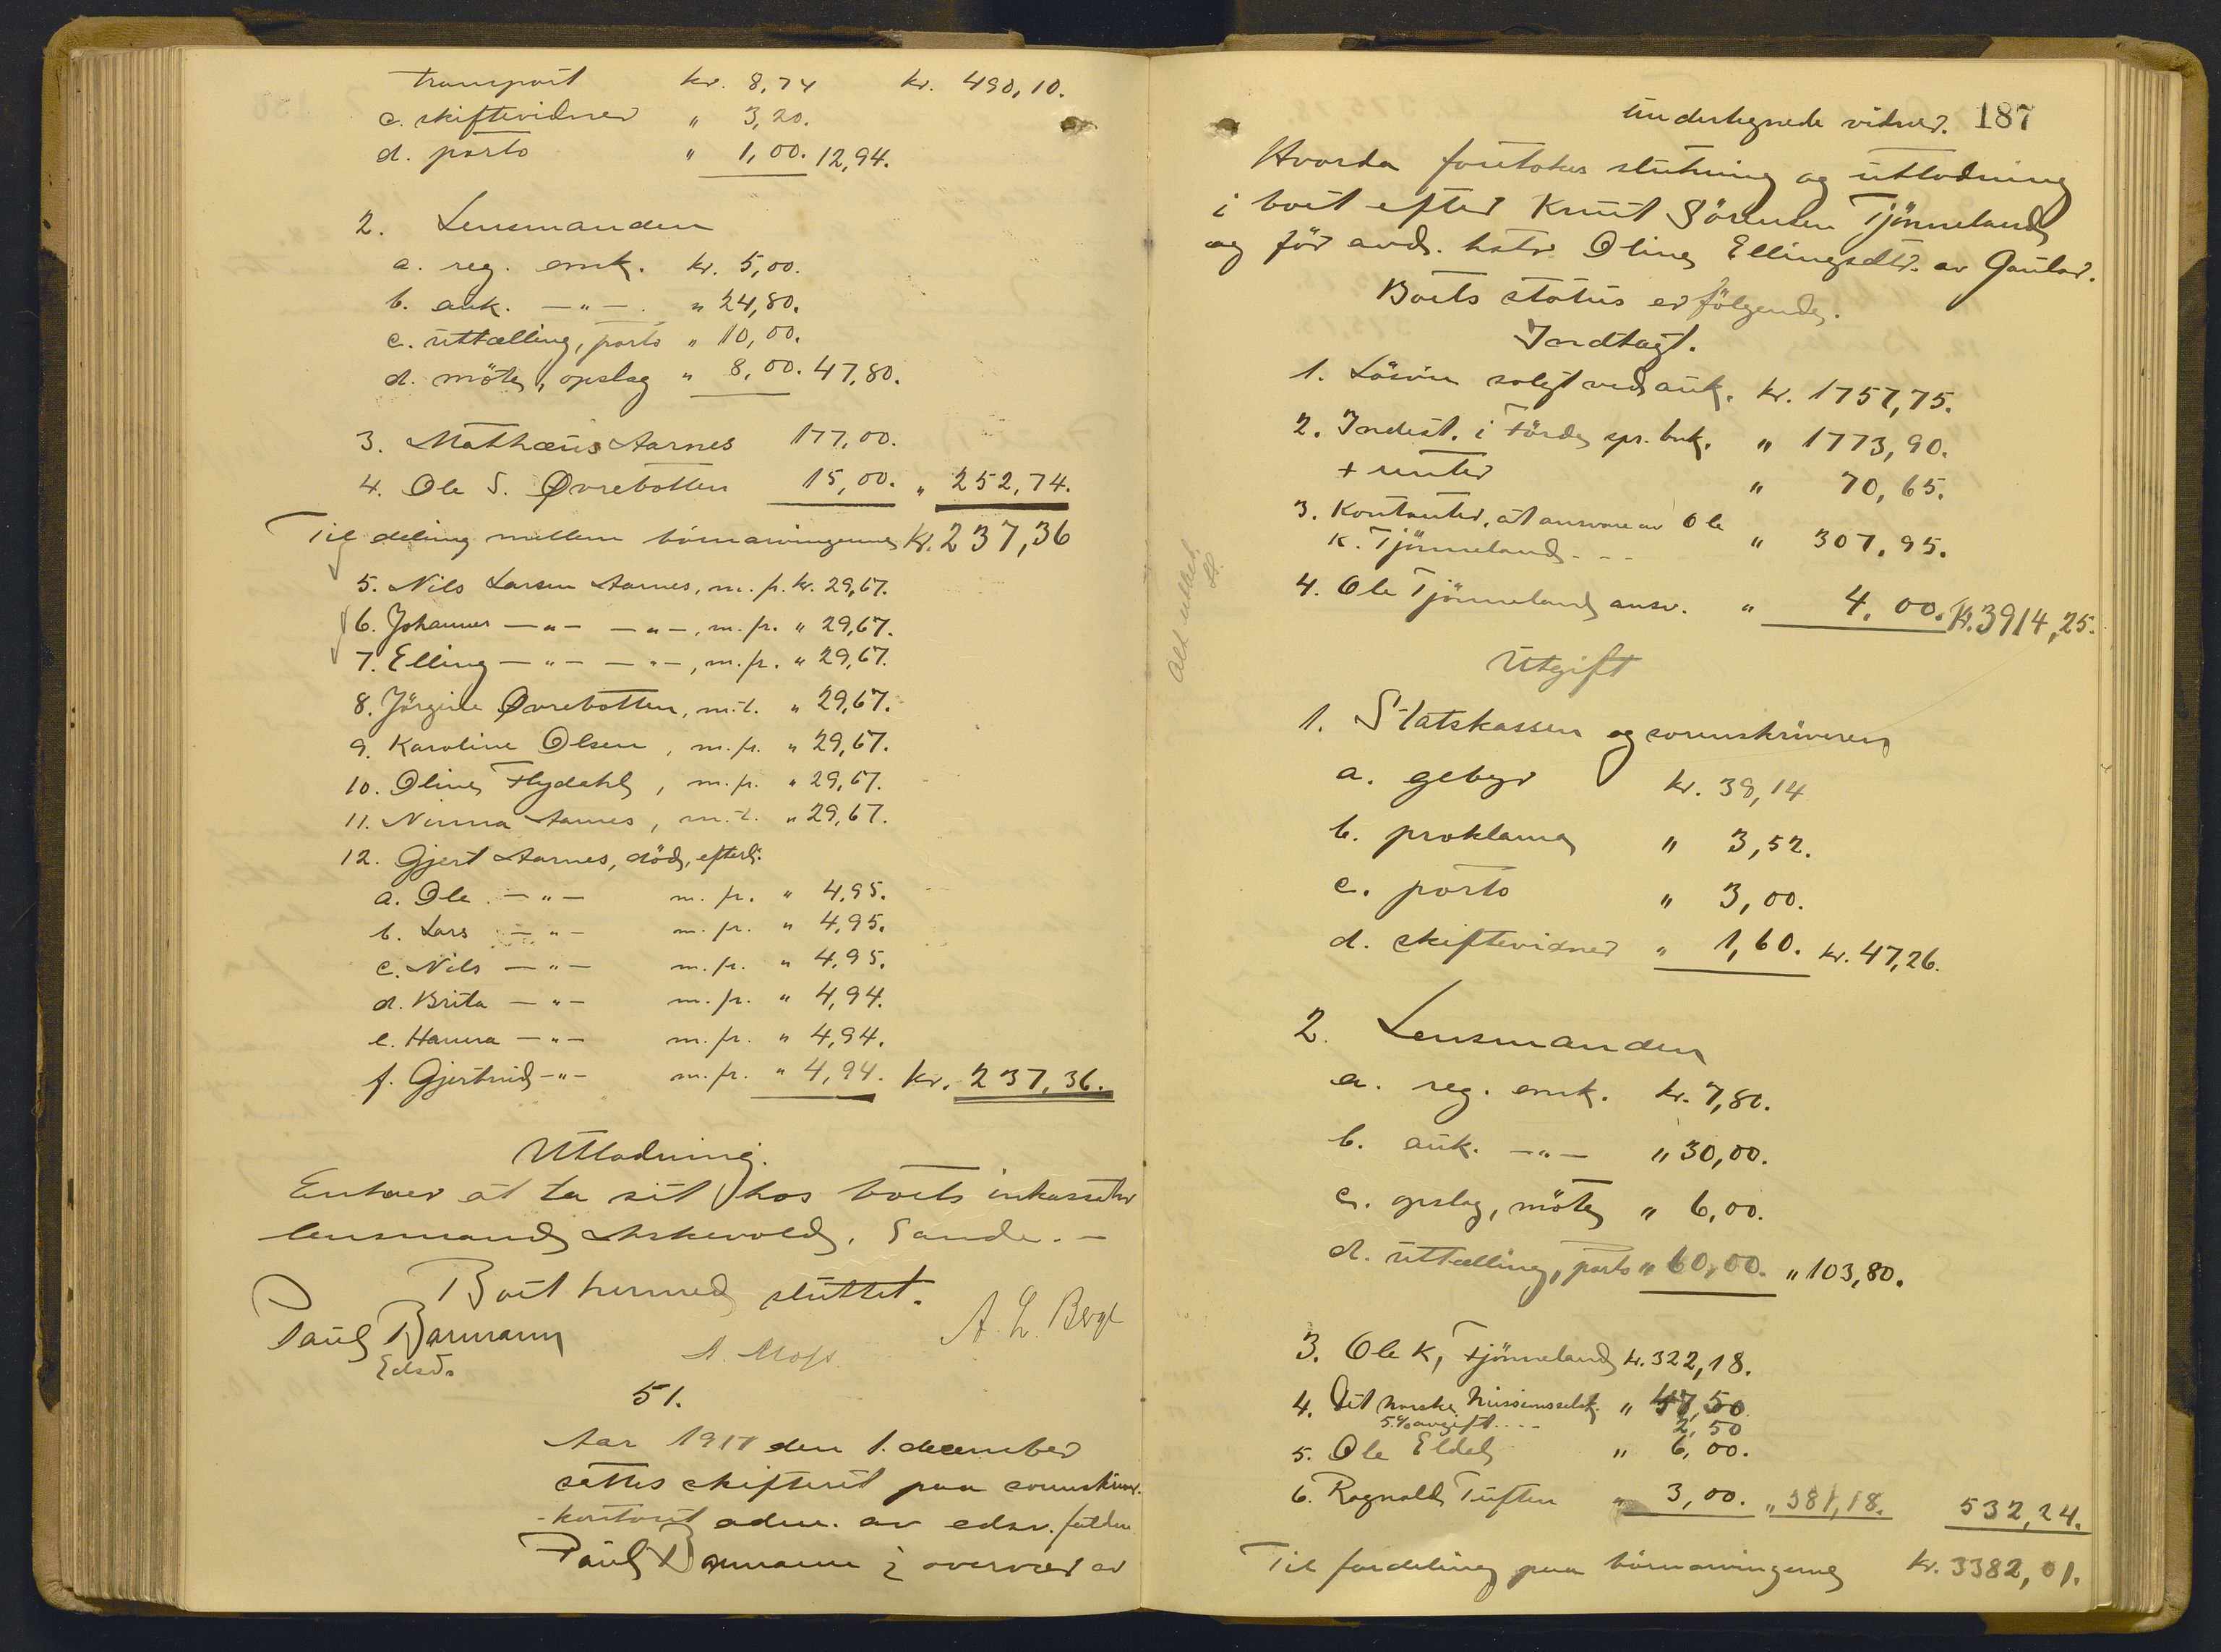 transport kr. 8,74 kr. 490,10.
c. skiftevidner " 3,20.
d. porto " 1,00. 12,94.
2. Lensmanden
a. reg. omk. kr. 5,00.
b. auk. —"— . " 24,80.
c. uttælling, porto " 10,00.
d. möte, opslag " 8,00. 47,80.
3. Mathæus Aarnes 177,00.
4. Ole S. Øvrebotten 15,00. " 252,74.
Til deling mellem börnarvingerne kr. 237,36
5. Nils Larsen Aarnes, m. fr. kr. 29,67.
6. Johannes —"— —"—, m. fr. " 29,67.
7. Elling —"— —"—, m. fr. " 29,67.
8. Jörgine Øvrebotten, m.t. " 29,67.
9. Karoline Olsen, m. fr. " 29,67.
10. Oline Flydahl, m. fr. " 29,67.
11. Ninna Aarnes, m.t. " 29,67.
12. Gjert Aarnes, död, efterl:
a. Ole —"— m. fr. " 4,95.
b. Lars —"— m. fr. " 4,95.
c. Nils —"— m. fr. " 4,95.
d. Brita —"— m. fr. " 4,94.
e. Hanna —"— m. fr. " 4,94.
f. Gjertrud —"— m. fr. " 4,94. kr. 237,36.
Utlodning.
Enhver at ta sit hos boets inkassator
lensmand Askevold, Sande. —
Boet hermed sluttet.
Paul Barmann
Edsv.
A. Moss.
A. L. Berge
51.
Aar 1917 den 1. december
sattes skifteret paa sorenskriver-
kontoret adm. av edsv. fuldm.
Paul Barmann i overvær av
undertegnede vidner. 187
Hvorda foretokes slutning og utlodning
i boet efter Knut Sörensen Tjönneland
og för avd. hstr. Oline Ellingsdtr. av Gaular.
Boets status er fölgende.
Indtægt.
1. Lösöre solgt ved auk. kr. 1757,75.
2. Indest. i Förde spr. bnk. " 1773,90.
+ renter " 70,65.
3. Kontanter, at ansvare av Ole
K. Tjönneland - - - " 307,95.
4. Ole Tjönneland ansv. " 4,00. Kr. 3914,25.
Alt utbet.
Utgift
1. Statskassen og sorenskriveren
a. gebyr kr. 39,14
b. proklama " 3,52.
c. porto " 3,00.
d. skiftevidner " 1,60. kr. 47,26.
2. Lensmanden
a. reg. omk. kr. 7,80.
b. auk. —"— " 30,00.
c. opslag, möte " 6,00.
d. uttælling, porto " 60,00. " 103,80.
3. Ole K. Tjönneland kr. 322,18.
4. Det norske Missionsselsk. " 47,50
5% avgift - - - 2,50
5. Ole Eldal " 6,00.
6. Ragnald Tuften " 3,00. " 381,18. 532,24.
Til fordeling paa börnarvingerne kr. 3382,01.